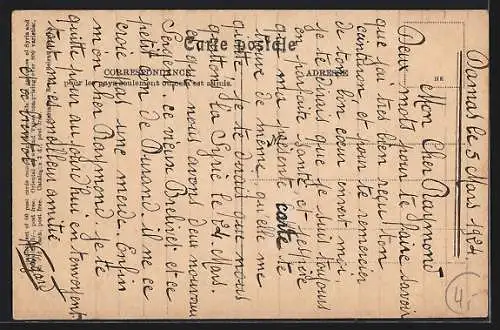 Carte postale
CORRESPONDANCE
ADRESSE
Damas le 5 Mars 1924
Mon Cher Raymond
Deux mots pour te faire savoir
que j'ai très bien reçu ton
et pour te remercier
de ton bon cœur envers moi,
je te dirais que je suis toujours
en parfaite santé et j'espère
que ma présente carte te
trouve de même, quelle me
quitte. je te dirais que nous
quittons la Syrie le 24 Mars.
ce que nous avons deux nouveau
Sergent. ce
petit con de Durand. il ne ce
croie pas une merde. Enfin
mon cher Raymond. je te
quitte pour aujourd'hui en t'envoyent
tout ma meilleur amitié
4.